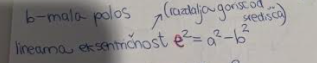 b-mala polos (razdalja gorišč od
središča)
linearna ekscentričnost e²=a²-b²